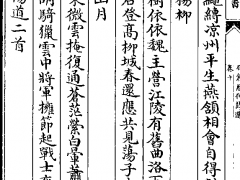 繩縳涼州平生燕頷相會自得
楊柳
樹依依魏主營江陵有舊曲洛下
君登高柳城春還應共見蕩子
山月
東微雲掩復通蒼茫縈白暈蕭
朔騎獵雲中將軍擁節起戰士
陽道二首